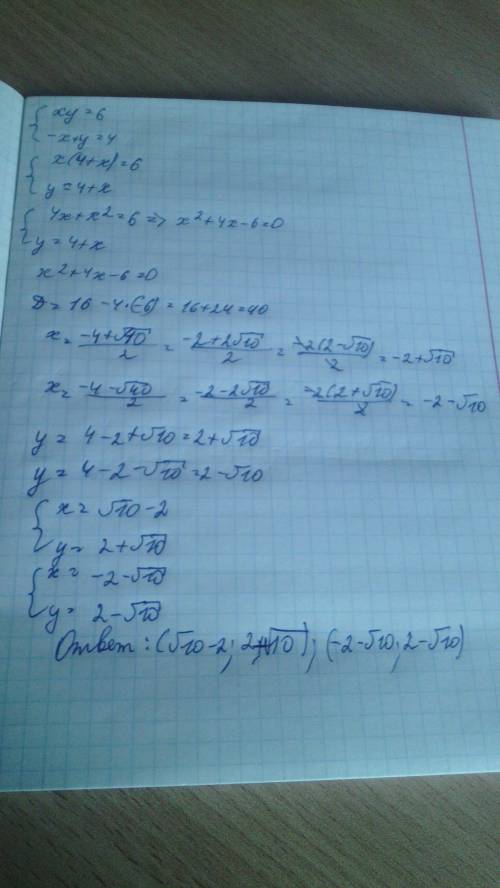 { xy = 6
-x+y = 4
{ x(4+x) = 6
y = 4+x
{ 4x+x² = 6 => x²+4x-6=0
y = 4+x
x²+4x-6=0
D = 16 - 4·(-6) = 16+24 = 40
x = (-4+√40)/2 = (-2+2√10)/2 = (-2(2-√10))/2 = -2+√10
x = (-4-√40)/2 = (-2-2√10)/2 = (-2(2+√10))/2 = -2-√10
y = 4-2+√10 = 2+√10
y = 4-2-√10 = 2-√10
{ x = √10-2
y = 2+√10
{ x = -2-√10
y = 2-√10
Ответ: (√10-2; 2+√10); (-2-√10; 2-√10)